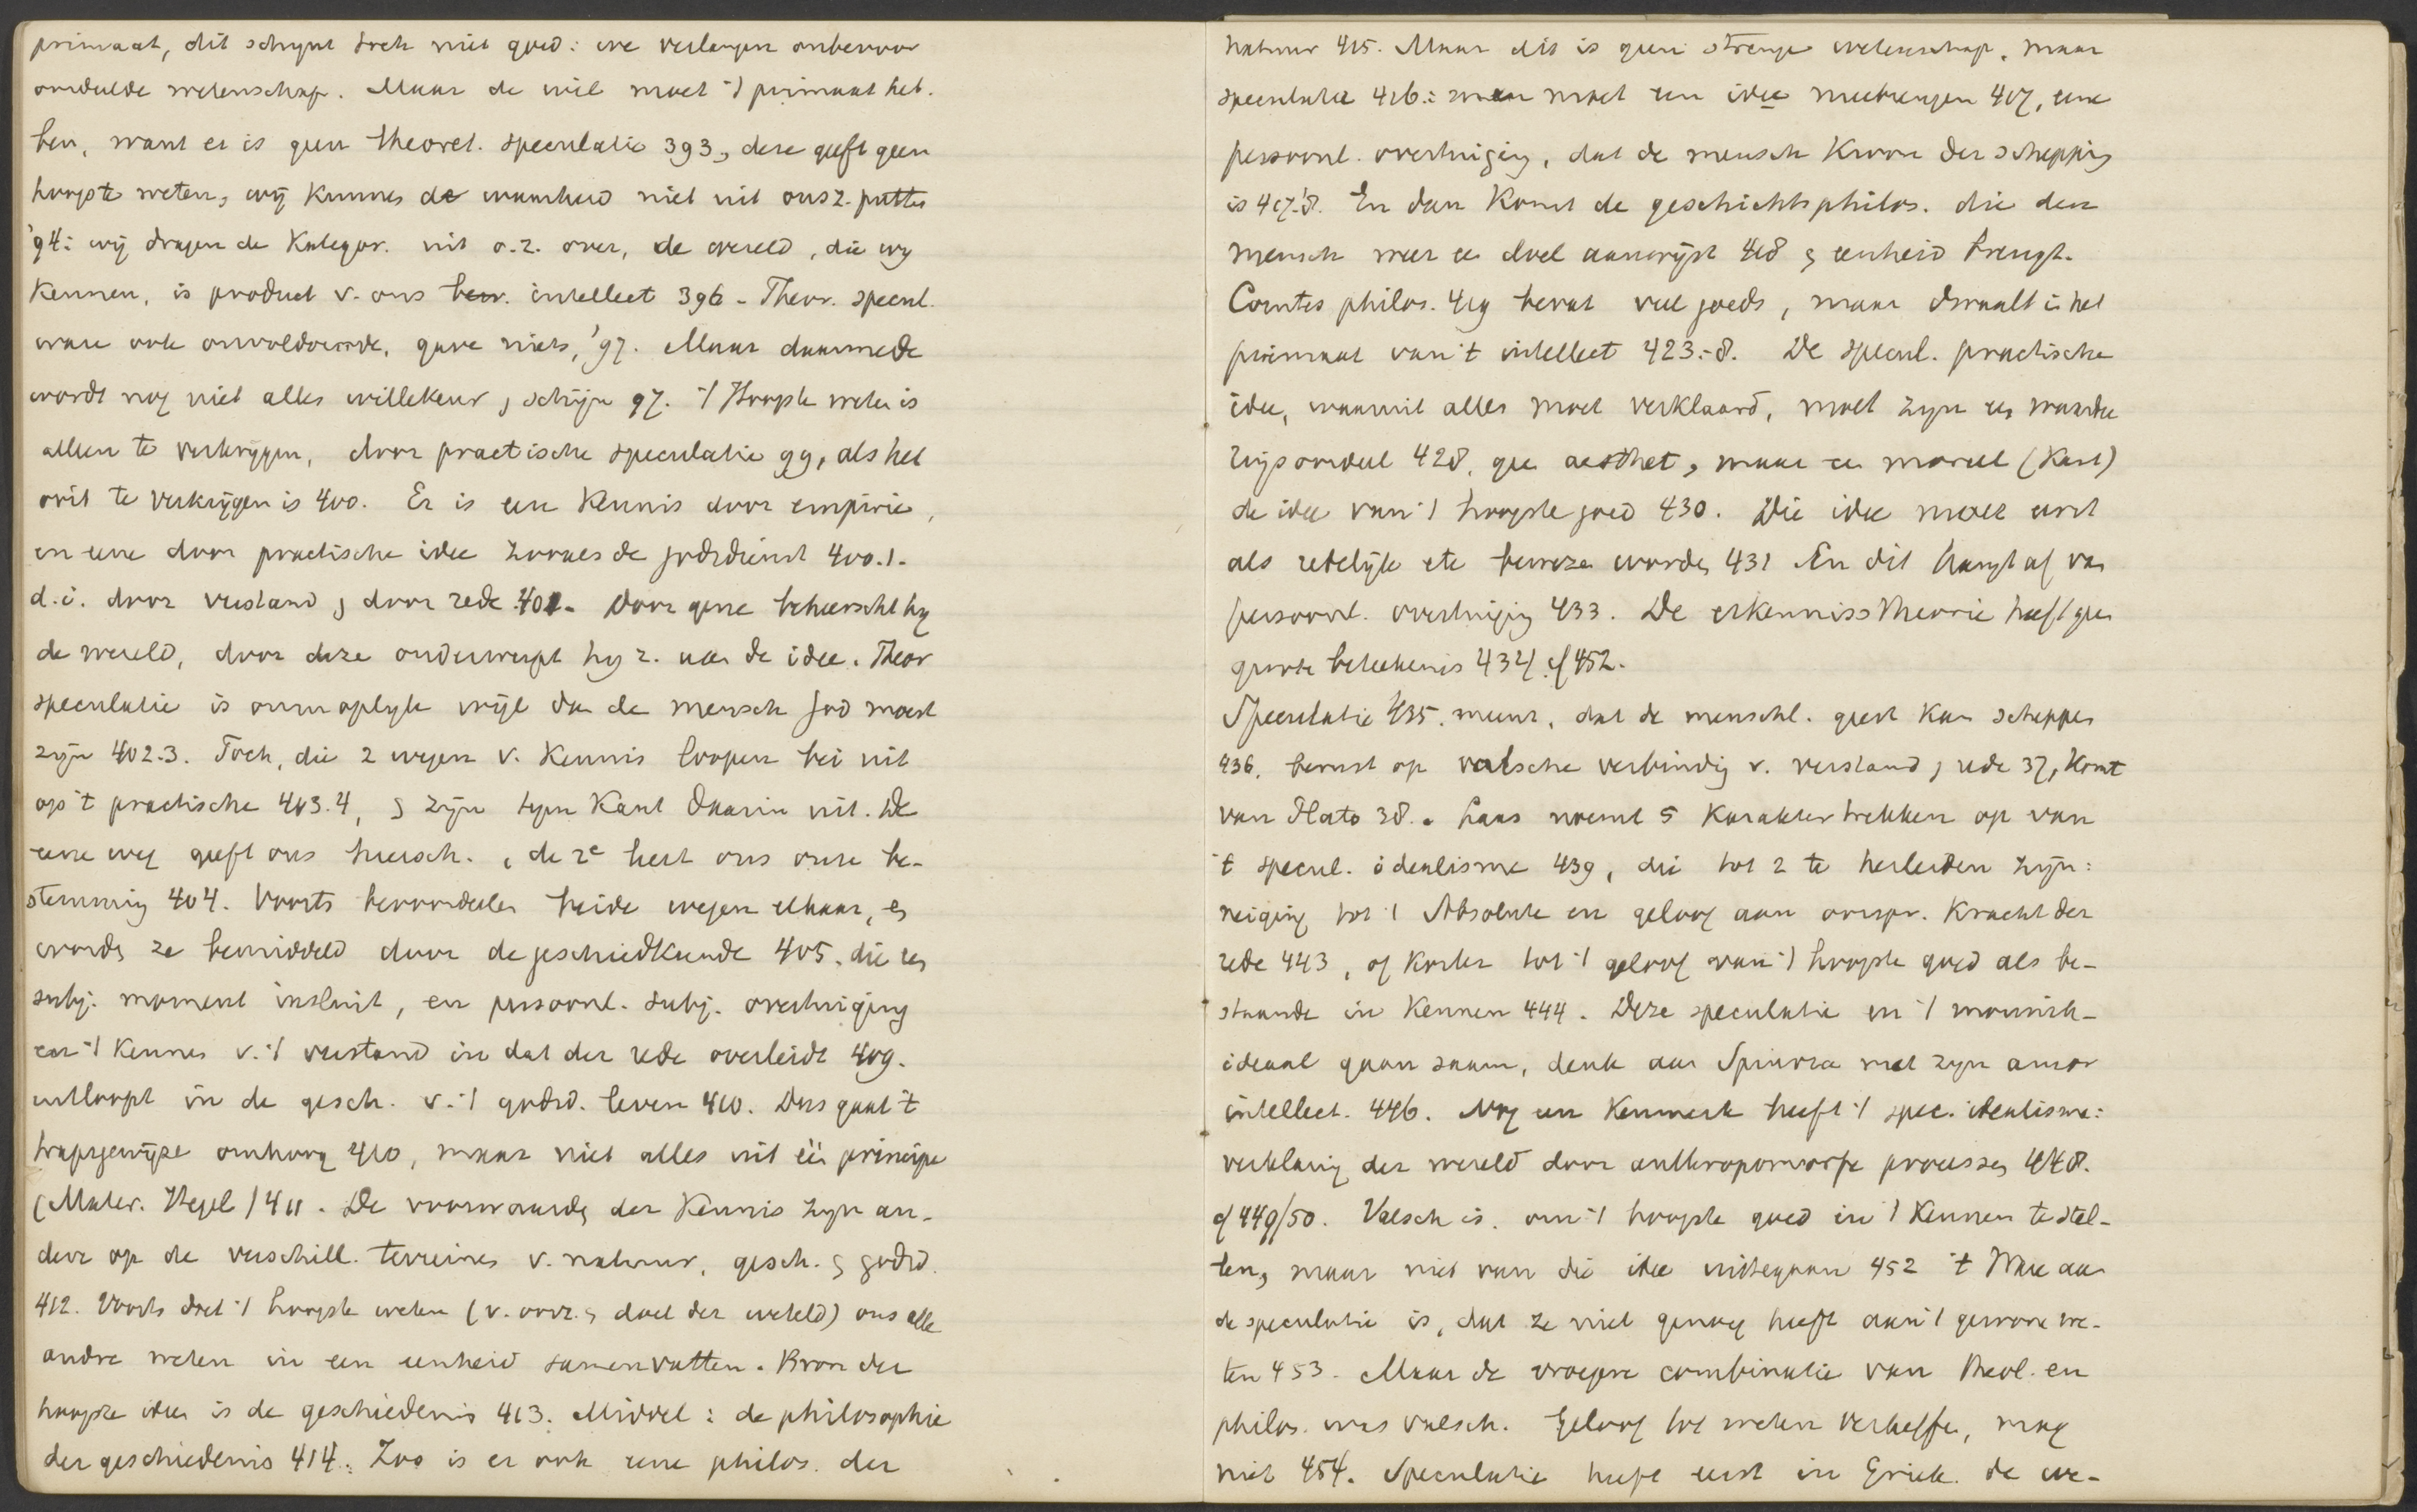 primaat, dit schynt toch niet goed: we verlangen onbevoor
oordeelde wetenschap. Maar de wil moet 't primaat heb-
ben, want er is geen theoret. speculatie 393, deze geeft geen
hoogste weten, wij kunnen de waarheid niet uit ons z. putten
'94: wij dragen de kategor. uit o.z. over, de wereld, die wy
kennen, is product v. ons bew. intellect 396 - Theor. specul.
ware ook onvoldoende, gave niets, '97. Maar daarmede
wordt nog niet alles willekeur, schijn 97. 't Hoogste weten is
alleen te verkrygen, door practische speculatie 99, als het
ooit te verkrijgen is 400. Er is een kennis door empirie,
en eene door practische idee zooals de godsdienst 400.1.
d.i. door verstand, door rede 401. Door gene beheerscht hy
de wereld, door deze onderwerpt hy z. aan de idee. Theor
speculatie is onmoglyk wijl dan de mensch God moest
zijn 402.3. Toch, die 2 wegen v. kennis loopen bei uit
op 't practische 403.4, & zijn tegen Kant daarin uit. De
eene weg geeft ons heersch., de 2e leert ons onze be-
stemming 404. Voorts bevoordeelen beide wegen elkaar, en
worden ze bemiddeld door de geschiedkunde 405, die een
subj. moment insluit, en persoonl. subj. overtuiging
van 't kennen v. 't verstand in dat der rede overleidt 409.
uitloopt in de gesch. v. 't godsd. leven 410. Dus gaat 't
trapsgewijze omhoog 410, maar niet alles uit één principe
(Mater. Hegel) 411. De voorwaarden der kennis zyn an-
dere op de verschill. terreinen v. natuur, gesch. & godsd.
412. Voorts doet 't hoogste weten (v. oorz. & doel der wereld) ons alle
andre weten in een eenheid samenvatten. Bron der
hoogste idee is de geschiedenis 413. Middel: de philosophie
der geschiedenis 414. Zoo is er ook eene philos. der
natuur 415. Maar dit is geen strenge wetenschap, maar
speculatie 416: men moet een idee meebrengen 417, eene
persoonl. overtuiging, dat de mensch Kroon der schepping
is 417.'8. En dan komt de geschichtsphilos. die den
mensch weer een doel aanwijst 418 & eenheid brengt.
Comtes philos. 419 bevat veel goeds, maar dwaalt in het
primaat van 't intellect 423.-8. De specul. practische
idee, waaruit alles moet verklaard, moet zyn een waardee
ringsoordeel 428, geen aesthet, maar een moreel (Kant)
de idee van 't hoogste goed 430. Die idee moet eerst
als redelijk etc bewezen worden 431 En dit hangt af van
persoonl. overtuiging 433. De erkenniss theorie heeft geen
groote beteekenis 434 cf 452.
Speculatie 435. meent, dat de menschl. geest kan scheppen
436. berust op valsche verbinding v. verstand, rede 37, komt
van Plato 38. Laas noemt 5 karaktertrekken op van
't specul. idealisme 439, die tot 2 te herleiden zijn:
neiging tot 't Absolute en geloof aan oorspr. kracht der
rede 443, of korter tot 't geloof van 't hoogste goed als be-
staande in kennen 444. Deze speculatie en 't monnik-
ideaal gaan saam, denk aan Spinoza met zyn amor
intellect. 446. Nog een kenmerk heeft 't spec. idealisme:
verklaring der wereld door anthropomorfe processen 448.
cf 449/50. Valsch is. om 't hoogste goed in 't kennen te stel-
len, maar niet van die idee uittegaan 452 't Ware aan
de speculatie is, dat ze niet genoeg heeft aan 't gewone we-
ten 453. Maar de vroegere combinatie van theol. en
philos. was valsch. Geloof tot weten verheffen, mag
niet 454. Speculatie heeft eerst in Griek. de we-